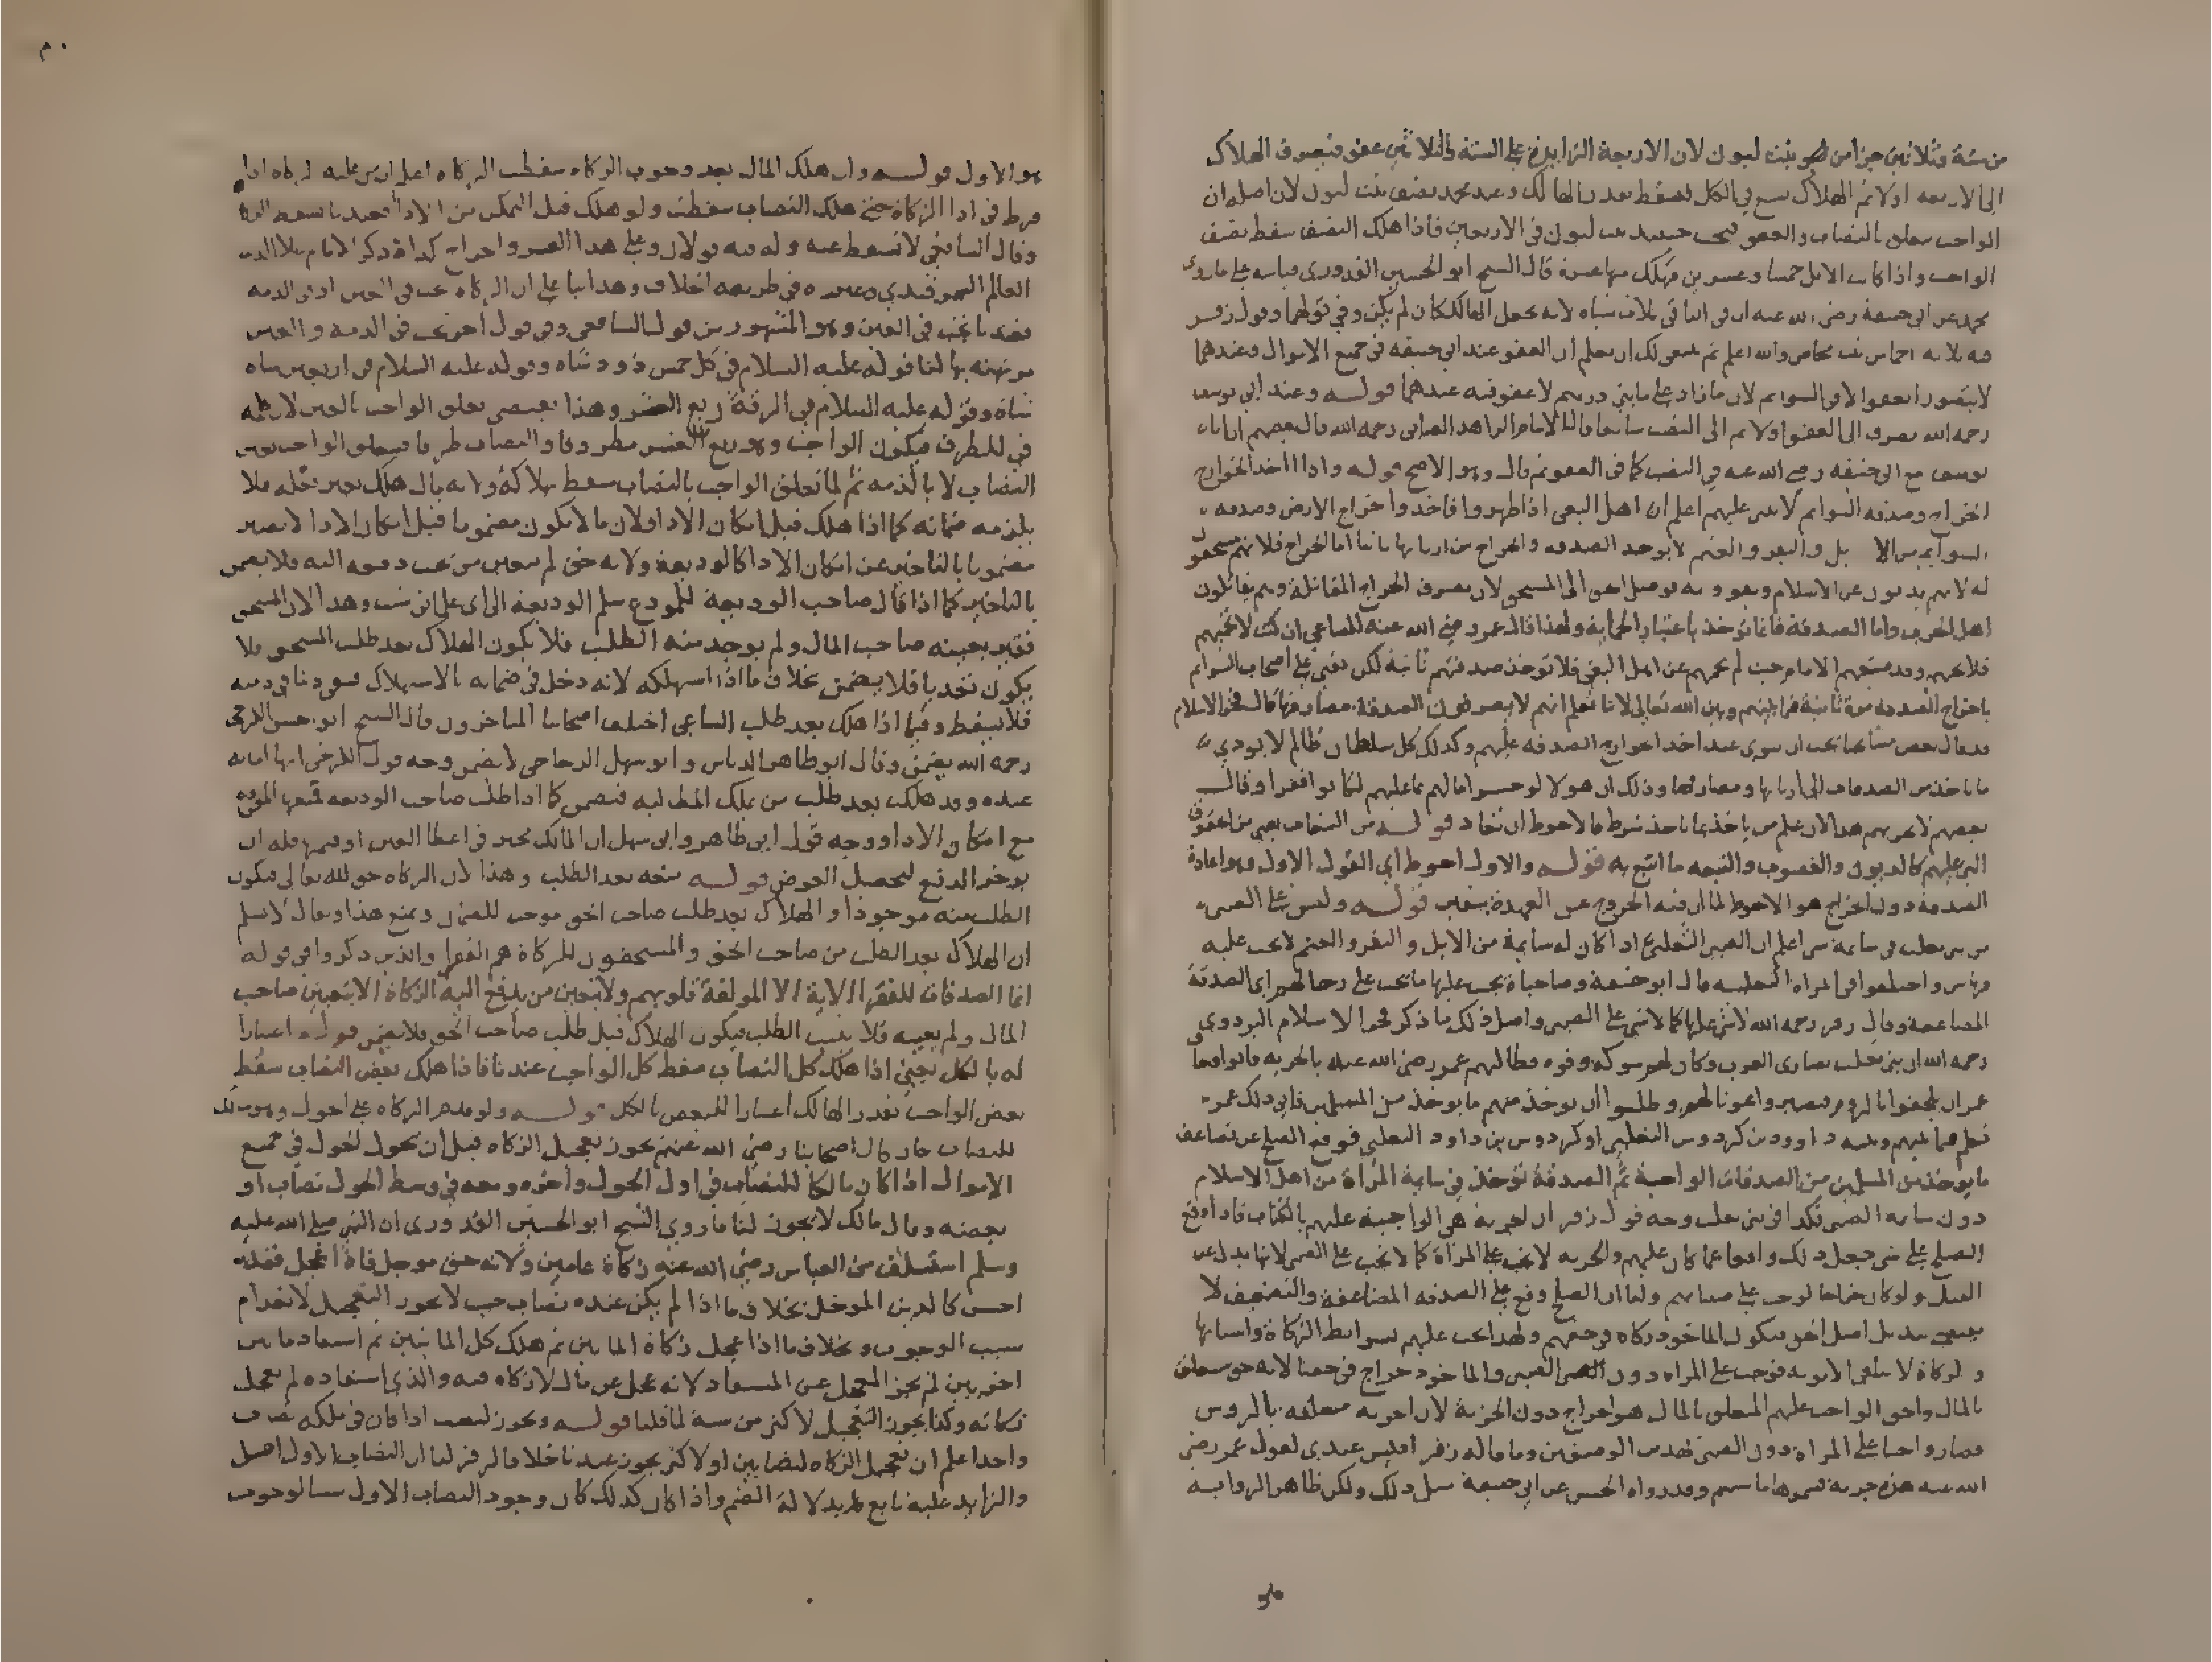 من ستة وثلاثين جزا من بنت لبون لان الاربعة الزايدة على الستة والثلاثين عفو فيصرف الهلاك
الى الاربعه اولا ثم الهلاك يسع في الكل فسقط بقدر الهالك وعند محمد نصف بنت لبون لان اصله ان
الواجب يتعلق بالنصاب والعفو فيجب بنت لبون في الاربعين فاذا هلك النصف سقط نصف
الواجب واذا كانت الابل خمسا وعشرين فهلك منها عشرة قال الشيخ ابو الحسين القدوري قياسه على ما روى
محمد عن ابي حنيفة رضي الله عنه ان في الباقي ثلاث شياه لانه يجعل الهالك كان لم يكن وفي قولهما وقول زفر
فيه ثلاثة اخماس بنت مخاض والله اعلم ثم ينبغي لك ان تعلم ان العفو عند ابي حنيفة في جميع الاموال وعندهما
لا يتصور العفو الا في السوايم لان ما زاد على مايتي درهم لا عفو فيه عندهما قوله وعند ابي يوسف
رحمه الله يصرف الى العفو اولا ثم الى النصب شايعا قال الامام الزاهد العتابي رحمه الله قال بعضهم ان ابا
يوسف مع ابي حنيفه رضي الله عنه في النصب كما في العفو ثم قال وهو الاصح قوله واذا اخذ الخوارج
الخراج وصدقه السوايم لا يثنى عليهم اعلم ان اهل البغي اذا ظهروا فاخذوا خراج الارض وصدقه
السوايم من الابل والبقر والغنم لا يوخذ الصدقه والخراج من اربابها ثانيا اما الخراج فلانهم مستحقون
له لانهم يذبون عن الاسلام
اهل الحرب واما الصدقة فانما توخذ باعتبار الحماية ولهذا قال عمر رضي الله عنه للساعي ان كنت لا تحميهم
فلا تجبهم وقد ضيعهم الامام حيث لم يحمهم عن اهل البغي فلا توخذ صدقتهم ثانية لكن يفتى على اصحاب السوايم
باخراج الصدقه مرة ثانية فيما بينهم وبين الله تعالى لانا نعلم انهم لا يصرفون الصدقة مصارفها قال فخر الاسلام
قد قال بعض مشايخنا يجب ان ينوي عند اخذ الخوارج الصدقه عليهم وكذلك كل سلطان ظالم لا يودي
ما ياخذ من الصدقات الى اربابها ومصارفها وذلك ان هولا لو حسبوا مالهم بما عليهم لكانوا فقرا وقال
بعضهم لا يجزيهم هذا لان علم من ياخذ بما ياخذ شرط فالاحوط ان تعاد قوله من التبعات
كالديون والغصوب والتبعه ما اتبع به قوله والاول احوط اي القول الاول وهو اعادة
الصدقة دون الخراج هو الاحوط لما ان فيه الخروج عن العهدة بيقين قوله وليس على الصبي
من بني تغلب في سايمه شي اعلم ان الصبي التغلبي اذا كان له سايمة من الابل والبقر والغنم لا يجب عليه
واختلفوا في المراة التغلبيه قال ابو حنيفة وصاحباه يجب عليها ما يجب على رجالهم اي الصدقة
المضاعفة وقال زفر رحمه الله لا شي عليها كما لا شي على الصبي واصل ذلك ما ذكر فخر الاسلام البزدوي
رحمه الله ان بني تغلب نصارى العرب وكان لهم شوكة وقوه فطالبهم عمر رضي الله عنه بالجزيه فابوا
عمر ان يلحقوا بالروم فيصيروا عونا لهم وطلبوا ان يوخذ منهم ما يوخذ من المسلمين فابى ذلك عمر
داوود بن كردوس التغلبي او كردوس بن داود التغلبي فوقع الصلح عن تضاعف
ما يوخذ من المسلمين من الصدقات الواجبة ثم الصدقة توخذ في سايمة المراة من اهل الاسلام
دون سايمه الصبي فكذا في بني تغلب وجه قول زفر ان الجزية هي الواجبة عليهم بالكتاب فاذا وقع
الصلح على شي جعل ذلك واقعا عما كان عليهم والجزيه لا تجب على المراة كما لا تجب على الصبي لانها بدل عن
القتل ولو كان خراجا لوجب على صبيانهم ولنا ان الصلح وقع على الصدقه المضاعفة والتضعيف لا
يقتضي تبديل اصل الحق فيكون الماخوذ زكاه في حقهم ولهذا يجب عليهم بشرايط الزكاة واسبابها
والزكاة فوجب على المراه دون الصبي والماخوذ خراج في حقنا لانه حق يتعلق
بالمال والحق الواجب عليهم المتعلق بالمال هو الخراج دون الجزية لان الجزيه متعلقه بالروس
فصار واجبا على المراة دون الصبي لهذين الوصفين وما قاله زفر اقيس عندي لقول عمر رضي
الله عنه هذه جزية فسموها ما شيتم وقد رواه الحسن عن ابي حنيفة مثل ذلك ولكن ظاهر الروايه
هو الاول قوله وان هلك المال بعد وجوب الزكاه سقطت الزكاه اعلم ان من عليه الزكاه اذا
فرط في ادا الزكاة حتى هلك النصاب سقطت ولو هلك قبل التمكن من الادا فعندنا
وقال الشافعي لا تسقط عنه وله فيه قولان وعلى هذا العشر والخراج كذا ذكر الامام علا الدين
العالم السمرقندي وغيره في طريقه الخلاف وهذا بنا على ان الزكاه تجب في العين او في الذمه
فعندنا تجب في العين وهو المشهور من قول الشافعي وفي قول اخر تجب في الذمه والعين
مرتهنه بها لنا قوله عليه السلام في كل خمس ذود شاه وقوله عليه السلام في اربعين شاه
شاة وقوله عليه السلام في الرقة ربع العشر وهذا يقتضي تعلق الواجب بالعين لان كلمه
في للظرف فيكون الواجب وهو ربع العشر مظروفا والنصاب ظرفا فيتعلق الواجب بعين
النصاب لا بالذمه ثم لما تعلق الواجب بالنصاب سقط بهلاكه ولانه مال هلك بغير فعله فلا
يلزمه ضمانه كما اذا هلك قبل امكان الادا ولان ما لا يكون مضمونا قبل امكان الادا لا يصير
مضمونا بالتاخير عن امكان الادا كالوديعة ولانه حق لم يتعين من يجب دفعه اليه فلا يضمن
بالتاخير كما اذا قال صاحب الوديعة للمودع سلم الوديعة الى اي علي شيت وهذا لان المستحق
فقير يعينه صاحب المال ولم يوجد منه الطلب فلا يكون الهلاك بعد طلب المستحق فلا
يكون تعديا فلا يضمن بخلاف ما اذا استهلكه لانه دخل في ضمانه بالاستهلاك فبقي دينا في ذمته
فلا يسقط وفيما اذا هلك بعد طلب الساعي اختلف اصحابنا المتاخرون قال الشيخ ابو الحسن الكرخي
رحمه الله يضمن وقال ابو طاهر الدباس وابو سهل الزجاجي لا يضمن وجه قول الكرخي انها امانه
عنده وقد هلكت بعد طلب من يملك المطالبه فيضمن كما اذا طلب صاحب الوديعه فمنعها المودع
مع امكان الادا ووجه قول ابي طاهر وابي سهل ان المالك مخير في اعطا العين او قيمتها فله ان
يوخر الدفع لتحصيل العوض قوله منعه بعد الطلب وهذا لان الزكاه حق لله تعالى فيكون
الطلب منه موجودا والهلاك بعد طلب صاحب الحق موجب للضمان ويمنع هذا ويقال لا نسلم
ان الهلاك بعد الطلب من صاحب الحق والمستحقون للزكاة هم الفقرا والذين ذكروا في قوله
انما الصدقات للفقرا الاية الا المولفة قلوبهم ولا يتعين من يدفع اليه الزكاة الا بتعيين صاحب
المال ولم يعينه فلا يثبت الطلب فيكون الهلاك قبل طلب صاحب الحق فلا يضمن قوله اعتبارا
له بالكل يعني اذا هلك كل النصاب سقط كل الواجب عندنا فاذا هلك بعض النصاب سقط
بعض الواجب بقدر الهالك اعتبارا للبعض بالكل قوله ولو قدم الزكاه على الحول وهو مالك
للنصاب جاز قال اصحابنا رضي الله عنهم يجوز تعجيل الزكاه قبل ان يحول الحول في جميع
الاموال اذا كان مالكا للنصاب في اول الحول واخره ومعه في وسط الحول نصاب او
بعضه وقال مالك لا يجوز لنا ما روى الشيخ ابو الحسين القدوري ان النبي صلى الله عليه
وسلم استسلف من العباس رضي الله عنه زكاة عامين ولانه حق موجل فاذا عجل فقد
احسن كالدين الموجل بخلاف ما اذا لم يكن عنده نصاب حيث لا يجوز التعجيل لانعدام
سبب الوجوب وبخلاف ما اذا عجل زكاة المايتين ثم هلك كل المايتين ثم استفاد مايتين
اخريين لم يجز المعجل عن المستفاد لانه عجل عن مال لا زكاه فيه والذي استفاده لم يعجل
زكاته وكذا يجوز التعجيل لاكثر من سنة لما قلنا قوله ويجوز لنصب اذا كان في ملكه نصاب
واحد اعلم ان تعجيل الزكاه لنصابين او لاكثر يجوز عندنا خلافا لزفر لنا ان النصاب الاول اصل
والزايد عليه تابع له بدلالة الضم واذا كان كذلك كان وجود النصاب الاول سببا لوجوب